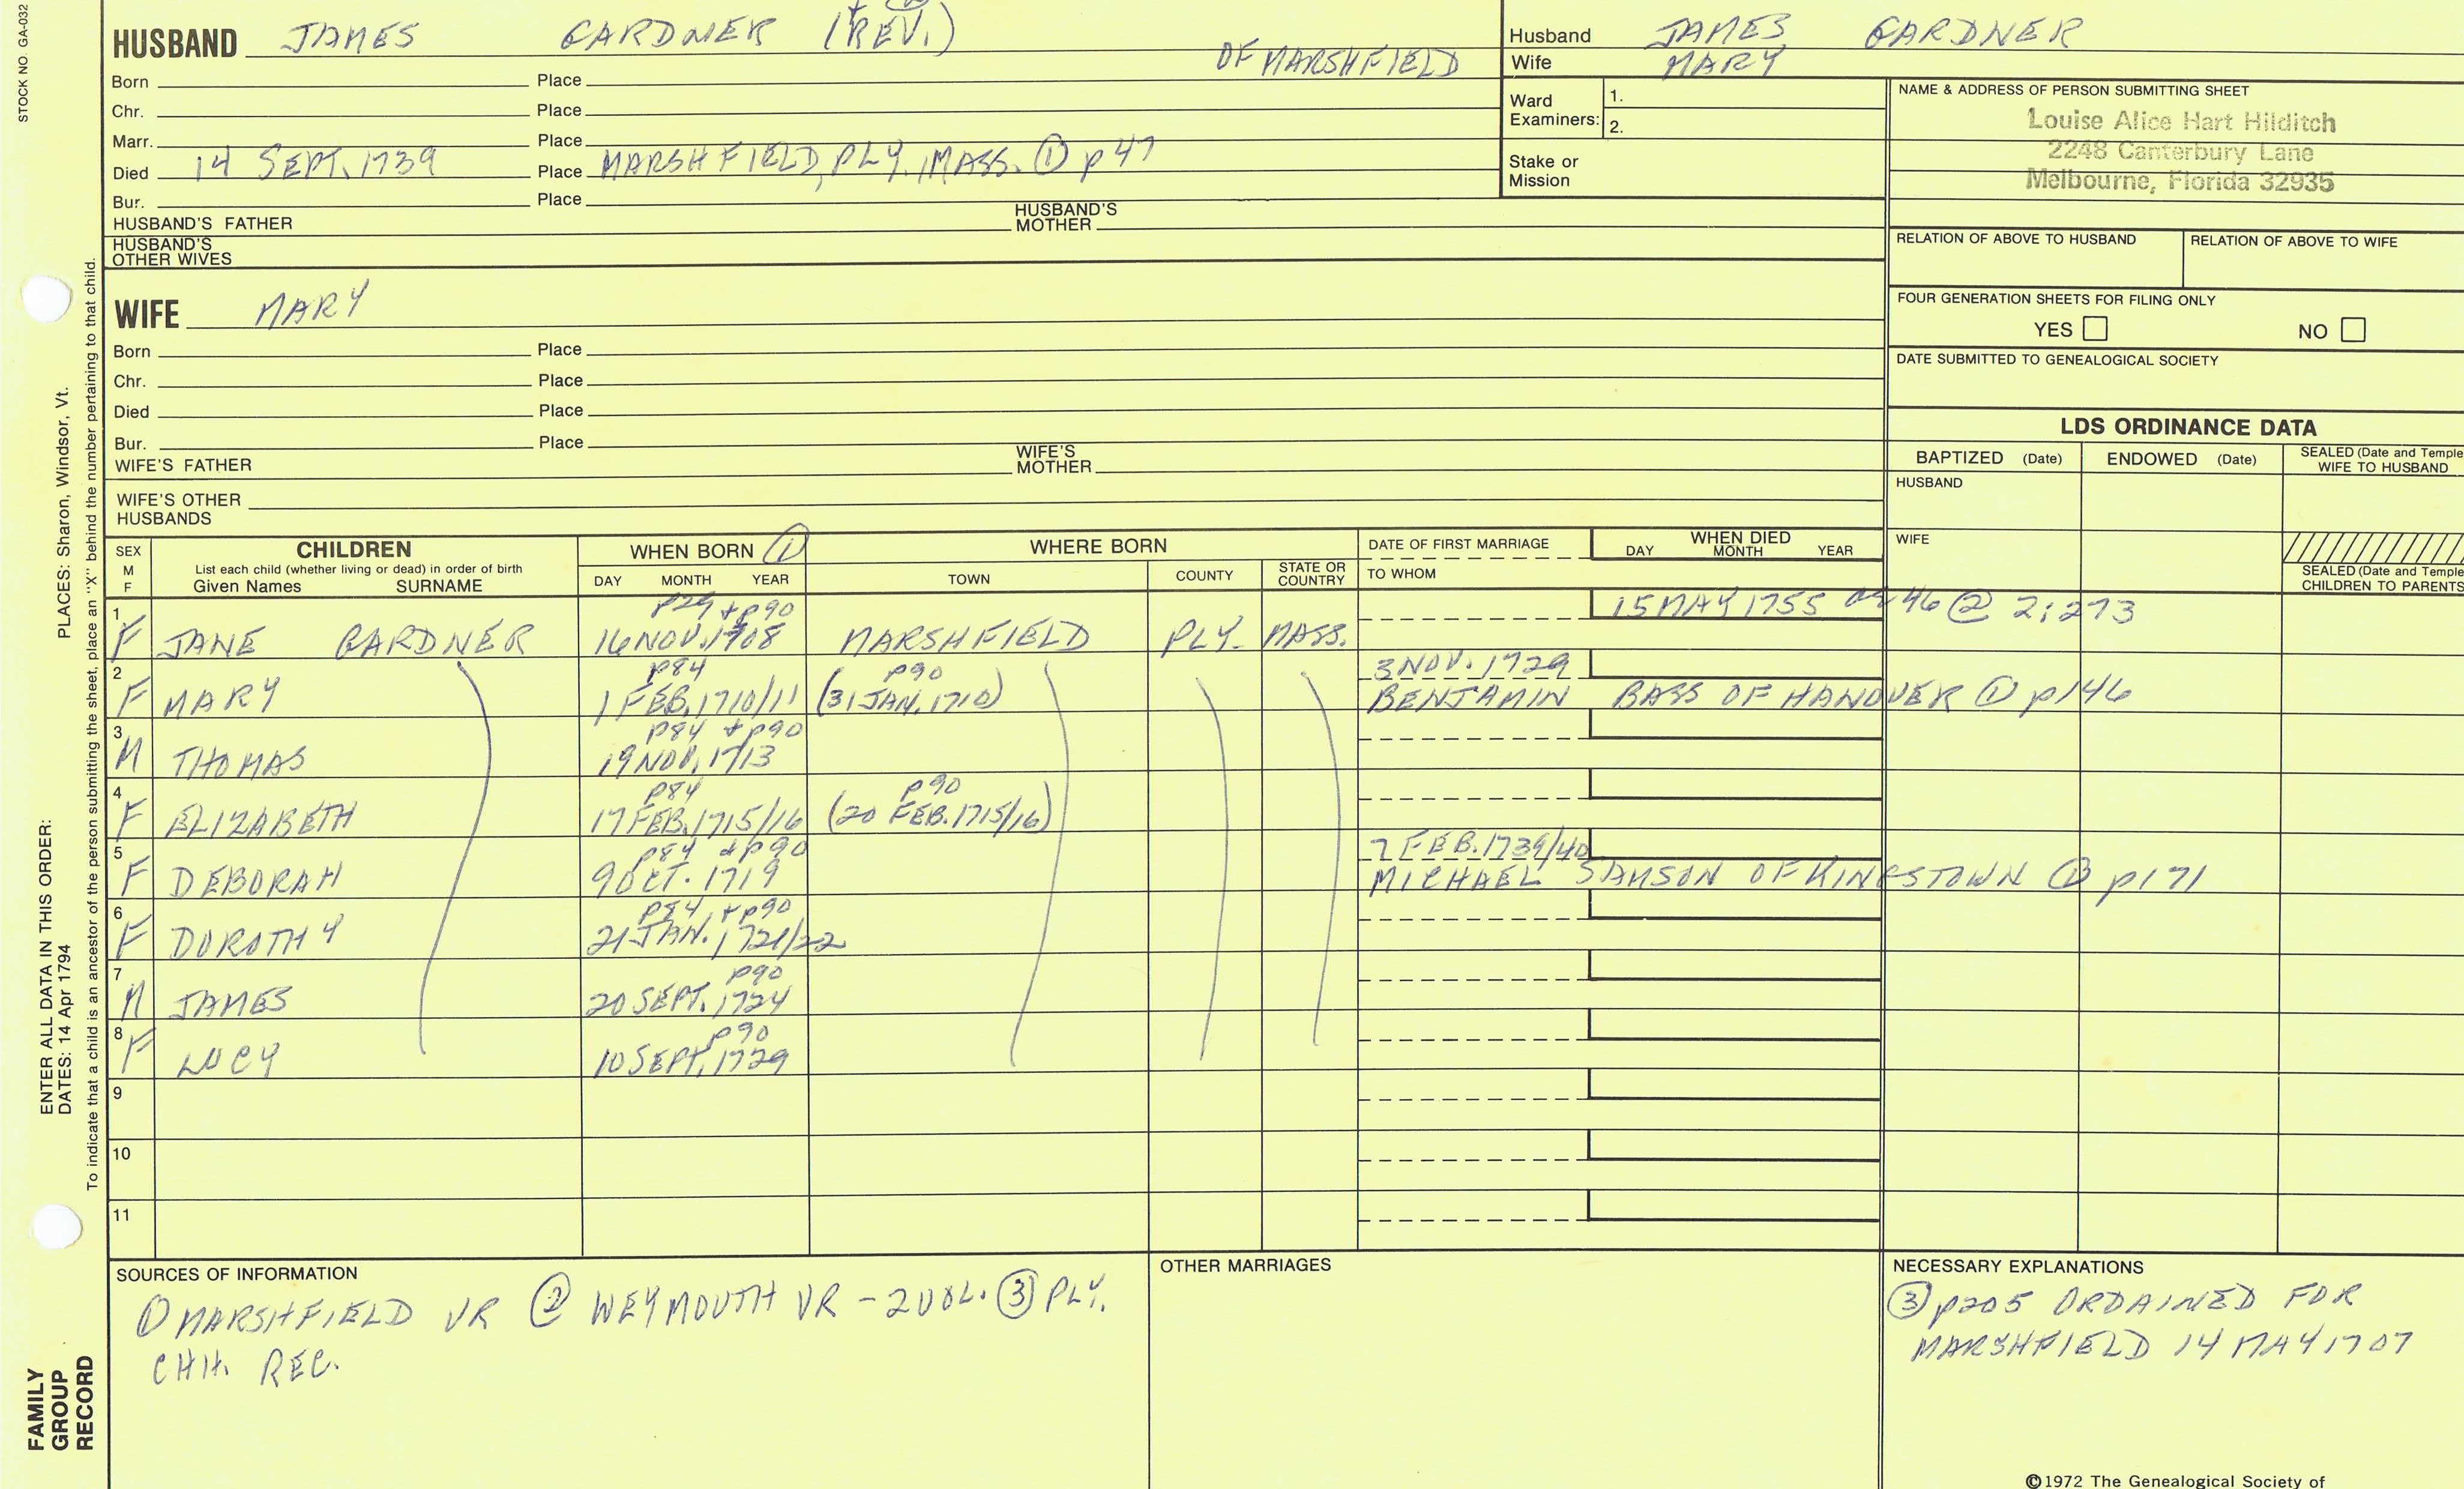 STOCK NO. GA-032
HUSBAND JAMES GARDNER (REV.)
OF MARSHFIELD
Born Place
Chr. Place
Marr. Place
Died 14 SEPT. 1739 Place MARSHFIELD, PLY., MASS. ① p 47
Bur. Place
HUSBAND'S FATHER HUSBAND'S MOTHER
HUSBAND'S OTHER WIVES
Husband JAMES GARDNER
Wife MARY
Ward Examiners: 1.
2.
Stake or Mission
NAME & ADDRESS OF PERSON SUBMITTING SHEET
Louise Alice Hart Hilditch
2248 Canterbury Lane
Melbourne, Florida 32935
RELATION OF ABOVE TO HUSBAND RELATION OF ABOVE TO WIFE
FOUR GENERATION SHEETS FOR FILING ONLY
YES NO
DATE SUBMITTED TO GENEALOGICAL SOCIETY
WIFE MARY
Born Place
Chr. Place
Died Place
Bur. Place
WIFE'S FATHER WIFE'S MOTHER
WIFE'S OTHER HUSBANDS
LDS ORDINANCE DATA
BAPTIZED (Date) ENDOWED (Date) SEALED (Date and Temple
WIFE TO HUSBAND
HUSBAND
WIFE
SEALED (Date and Temple
CHILDREN TO PARENTS
SEX M F CHILDREN WHEN BORN ① WHERE BORN DATE OF FIRST MARRIAGE WHEN DIED
List each child (whether living or dead) in order of birth
Given Names SURNAME DAY MONTH YEAR TOWN COUNTY STATE OR COUNTRY TO WHOM DAY MONTH YEAR
p29 + p90 15 MAY 1755 ae 46 ② 2:273
1 F JANE GARDNER 16 NOV. 1708 MARSHFIELD PLY. MASS.
p84 p90 3 NOV. 1729
2 F MARY 1 FEB. 1710/11 (31 JAN. 1710) BENJAMIN BASS OF HANOVER ① p146
p84 + p90
3 M THOMAS 19 NOV. 1713
p84 p90
4 F ELIZABETH 17 FEB. 1715/16 (20 FEB. 1715/16)
p84 + p90 7 FEB. 1739/40
5 F DEBORAH 9 OCT. 1719 MICHAEL SAMSON OF KINGSTOWN ① p171
p84 + p90
6 F DOROTHY 21 JAN. 1721/22
p90
7 M JAMES 20 SEPT. 1724
p90
8 F LUCY 10 SEPT. 1729
9
10
11
SOURCES OF INFORMATION
① MARSHFIELD VR ② WEYMOUTH VR - 2 VOL. ③ PLY.
CHH. REC.
OTHER MARRIAGES
NECESSARY EXPLANATIONS
③ p205 ORDAINED FOR
MARSHFIELD 14 MAY 1707
©1972 The Genealogical Society of
PLACES: Sharon, Windsor, Vt.
ENTER ALL DATA IN THIS ORDER:
DATES: 14 Apr 1794
To indicate that a child is an ancestor of the person submitting the sheet, place an "X" behind the number pertaining to that child.
FAMILY
GROUP
RECORD